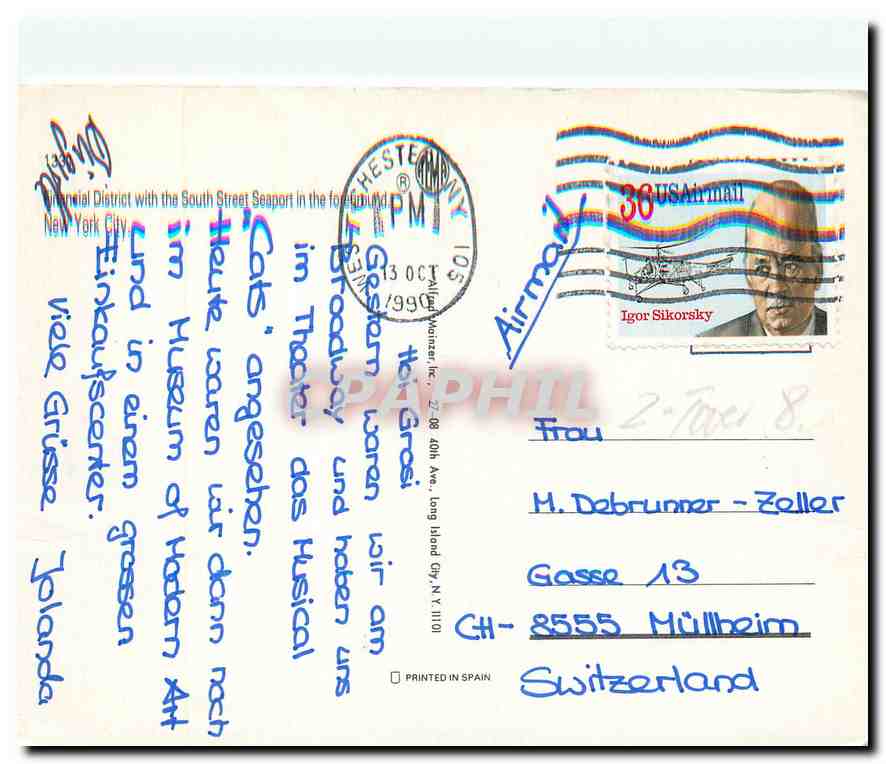 1330
Financial District with the South Street Seaport in the foreground.
New York City.
Hoi Grosi
Gestern waren wir am
Broadway und haben uns
im Theater das Musical
"Cats" angesehen.
Heute waren wir dann noch
im Museum of Modern Art
und in einem grossen
Einkaufscenter.
Viele Grüsse Jolanda
Alfred Mainzer, Inc., 27-08 40th Ave., Long Island City, N.Y. 11101
PRINTED IN SPAIN
WESTCHESTER NY 105
PM
13 OCT
1990
36 USAirmail
Igor Sikorsky
Airmail
CPAPHIL
Frau
M. Debrunner - Zeller
Gasse 13
CH - 8555 Müllheim
Switzerland